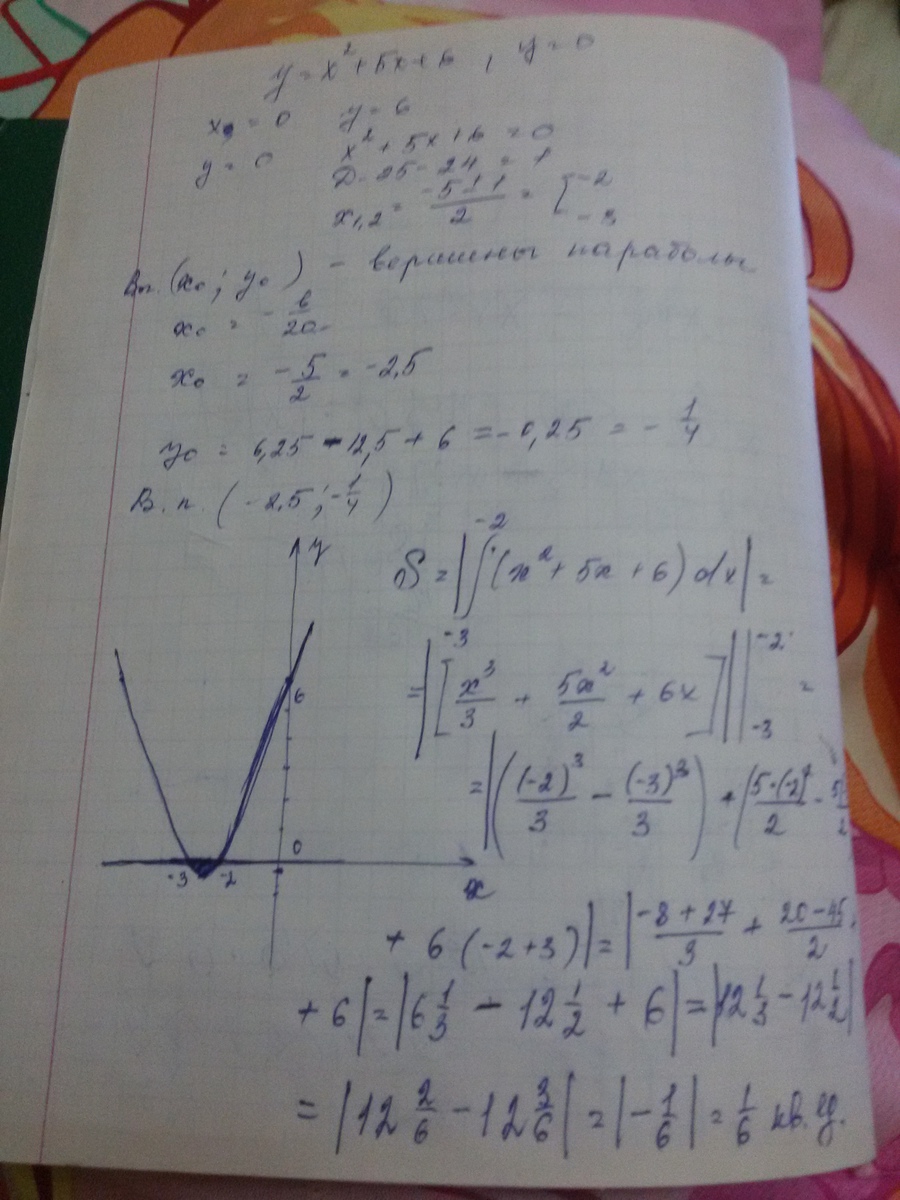 y = x² + 5x + 6 , y = 0
x = 0 y = 6
y = 0 x² + 5x + 6 = 0
D = 25 - 24 = 1
x₁,₂ = (-5 ± 1)/2 = [ -2
-3
Вп. (x₀; y₀) - вершины параболы
x₀ = - в/2a
x₀ = - 5/2 = -2,5
y₀ = 6,25 - 12,5 + 6 = -0,25 = - 1/4
В.п. (-2,5; -1/4)
y
6
0
-3 -2
x
S = |∫₋₃⁻² (x² + 5x + 6) dx| =
= |[x³/3 + 5x²/2 + 6x]||₋₃⁻² =
= |((-2)³/3 - (-3)³/3) + (5·(-2)²/2 - 5/2
+ 6 (-2+3)| = |(-8+27)/3 + (20-45)/2
+ 6| = |6 1/3 - 12 1/2 + 6| = |12 1/3 - 12 1/2|
= |12 2/6 - 12 3/6| = |- 1/6| = 1/6 кв. ед.